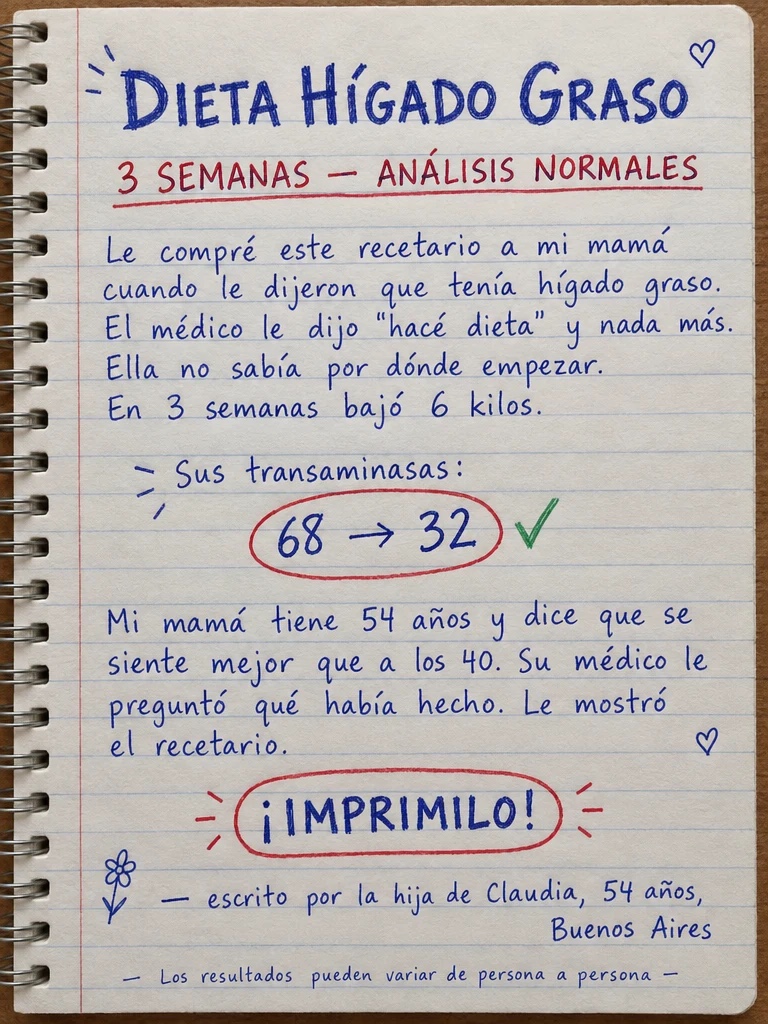 DIETA HÍGADO GRASO
3 SEMANAS — ANÁLISIS NORMALES
Le compré este recetario a mi mamá
cuando le dijeron que tenía hígado graso.
El médico le dijo "hacé dieta" y nada más.
Ella no sabía por dónde empezar.
En 3 semanas bajó 6 kilos.
Sus transaminasas:
68 → 32 ✓
Mi mamá tiene 54 años y dice que se
siente mejor que a los 40. Su médico le
preguntó qué había hecho. Le mostró
el recetario.
¡IMPRIMILO!
— escrito por la hija de Claudia, 54 años,
Buenos Aires
— Los resultados pueden variar de persona a persona —